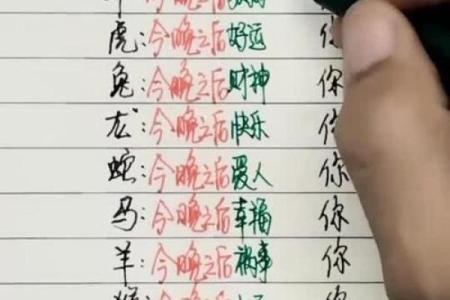 虎:今晚之后好运 你
兔:今晚之后财神 你
龙:今晚之后快乐 你
蛇:今晚之后爱人 你
马:今晚之后幸福 你
羊:今晚之后祸事 你
猴:今晚之后